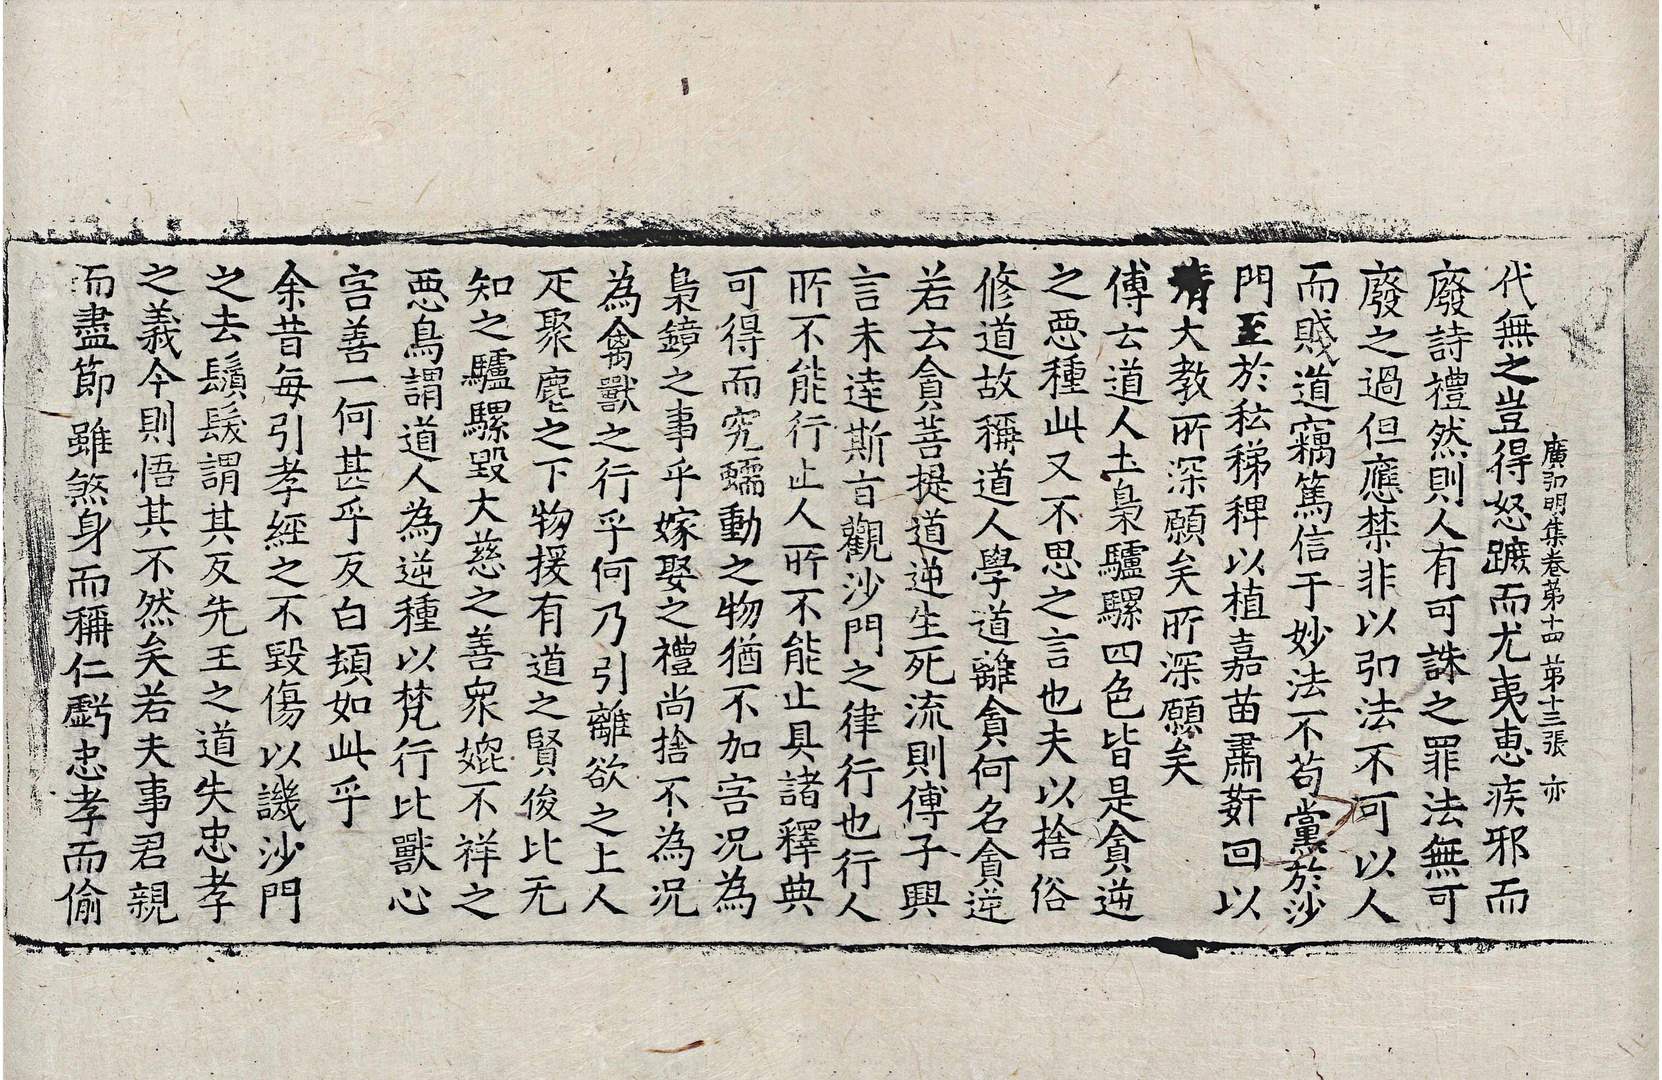 廣弘明集卷第十四 第十三張 亦
代無之豈得怒蹠而尤夷恵疾邪而
廢詩禮然則人有可誅之罪法無可
廢之過但應禁非以弘法不可以人
而賤道竊篤信于妙法不苟黨於沙
門至於秐稊稗以植嘉苗肅姧回以
清大教所深願矣所深願矣
傅云道人土梟驢騾四色皆是貪逆
之惡種此又不思之言也夫以捨俗
修道故稱道人學道離貪何名貪逆
若云貪菩提道逆生死流則傅子興
言未逹斯旨觀沙門之律行也行人
所不能行止人所不能止具諸釋典
可得而究蠕動之物猶不加害况為
梟鏡之事乎嫁娶之禮尚捨不為况
為禽獸之行乎何乃引離欲之上人
疋聚麀之下物援有道之賢俊比无
知之驢騾毀大慈之善衆媲不祥之
惡鳥謂道人為逆種以梵行比獸心
害善一何甚乎反白㨋如此乎
余昔每引孝經之不毀傷以譏沙門
之去鬚髮謂其反先王之道失忠孝
之義今則悟其不然矣若夫事君親
而盡節雖煞身而稱仁虧忠孝而偷